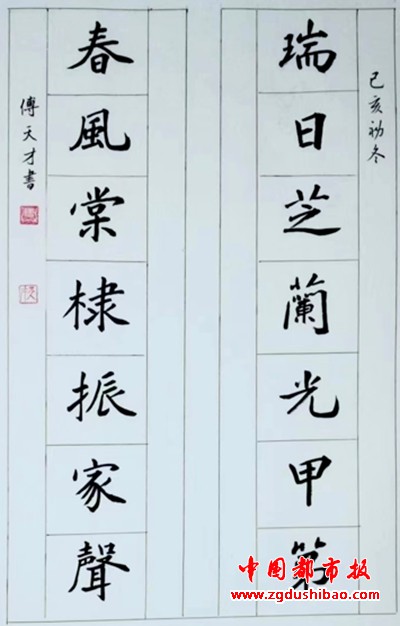 己亥初冬
瑞日芝蘭光甲第
春風棠棣振家聲
傅天才書
中国都市报
www.zgdushibao.com